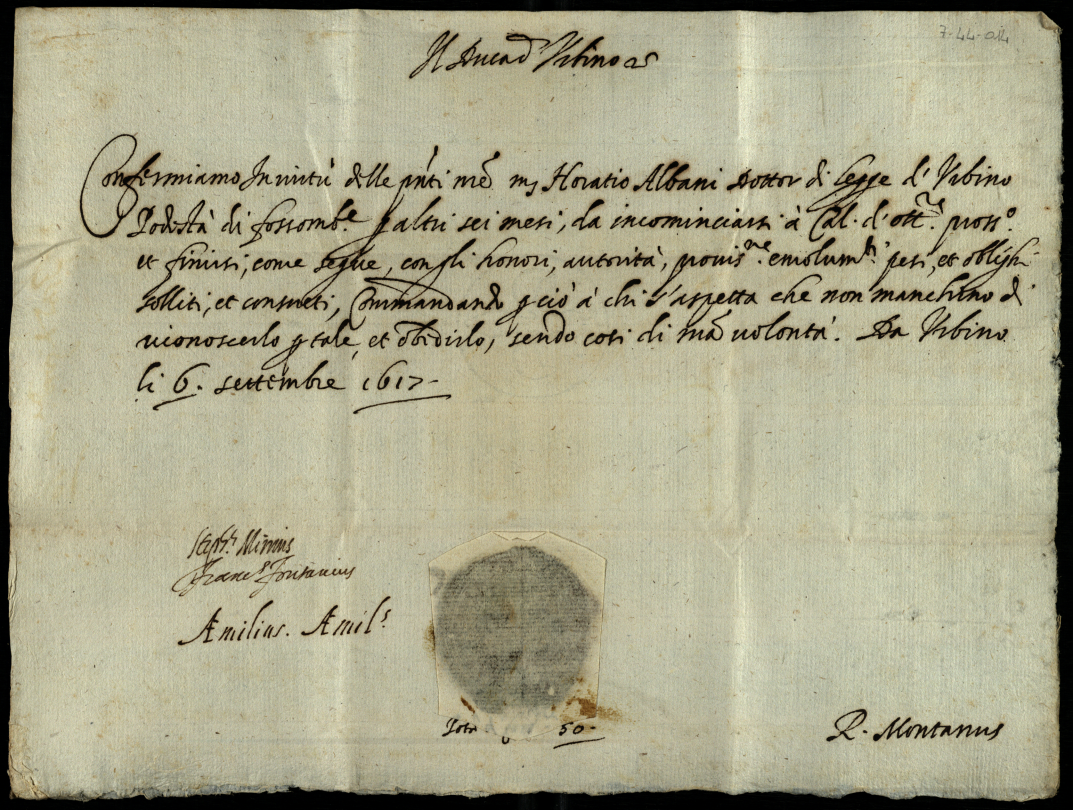 7-44-014
Il Duca d'Urbino etc
Confermiamo In virtù delle pñti nr̃e m͂ Horatio Albani Dottor di legge d'Urbino
Podestà di fossomb.e p altri sei mesi, da incominciarsi à Cal. d'ott.re pross.o
et finirsi, come segue, con gli honori, autorità, provis.ne emolum.ti pesi, et oblighi
soliti, et consueti, Commandando p ciò à chi s'aspetta che non manchino di
riconoscerlo p tale, et obedirlo, sendo così di nr̃a volontà. Da Urbino
li 6. settembre 1617-
Steph.s
Franc.s
Æmilius. Æmil.s
50-
R. Montanus